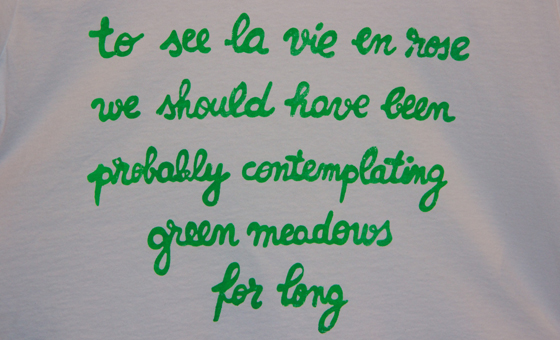 to see la vie en rose
we should have been
probably contemplating
green meadows
for long